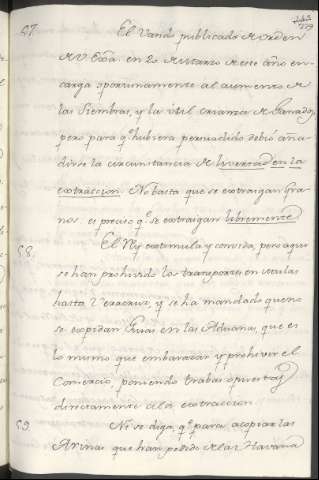 57. El Vando publicado de orden
de V. Exâ. en 20 de Marzo de este año en-
carga oportunamente el aumento de
las Siembras, y la util crianza de Ganados,
pero para q.e hubiera persuadido debió aña-
dirse la circunstancia de livertad en la
extraccion. No basta que se extraigan gra-
nos: es preciso q.e se extraigan libremente
58. El Rey extimula y convida, pero aqui
se han prohivido los transportes en mulas
hasta Veracruz, y se ha mandado que no
se expidan Guias en las Aduanas, que es
lo mismo que embarazar y prohiver el
Comercio, poniendo trabas opuestas
directamente á la extraccion.
59. Ni se diga, q.e para acopiar las
Arinas que han pedido de la Havana